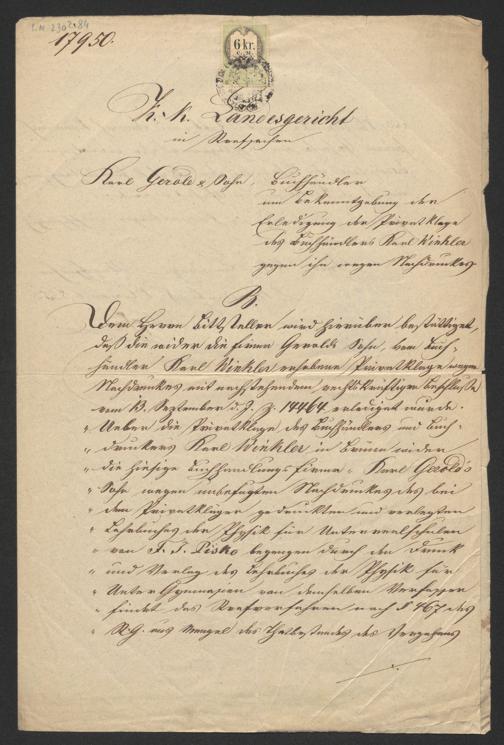 I.N. 230284
17950.
6 kr.
C.M.
K. k. Landesgericht
in Strafsachen
Karl Gerold & Sohn, Buchhändler
um Bekanntgebung der
Erledigung der Privatklage
des Buchhändlers Karl Winkler
gegen ihn wegen Nachdruckes
B.
Dem Herrn Bittsteller wird hierüber bestättiget,
daß die wider die Firma Gerolds Sohn, vom Buch-
händler Karl Winkler erhobene Privatklage wegen
Nachdruckes mit nachstehendem rechtskräftigen Beschluße
vom 13. September d. J. Z. 14464 erlediget wurde.
"Ueber die Privatklage des Buchhändlers und Buch-
"druckers Karl Winkler in Brünn wider
"die hiesige Buchhandlungsfirma Karl Gerold's
"Sohn wegen unbefugten Nachdruckes des bei
"dem Privatkläger gedruckten und verlegten
"Lehrbuches der Physik für Unterrealschulen
"von F. J. Pisko begangen durch den Druck
"und Verlag des Lehrbuches der Physik für
"Unter Gymnasien von demselben Verfasser
"findet das Strafverfahren nach § 467 des
"St.G. aus Mangel des Thatbestandes des Vergehens